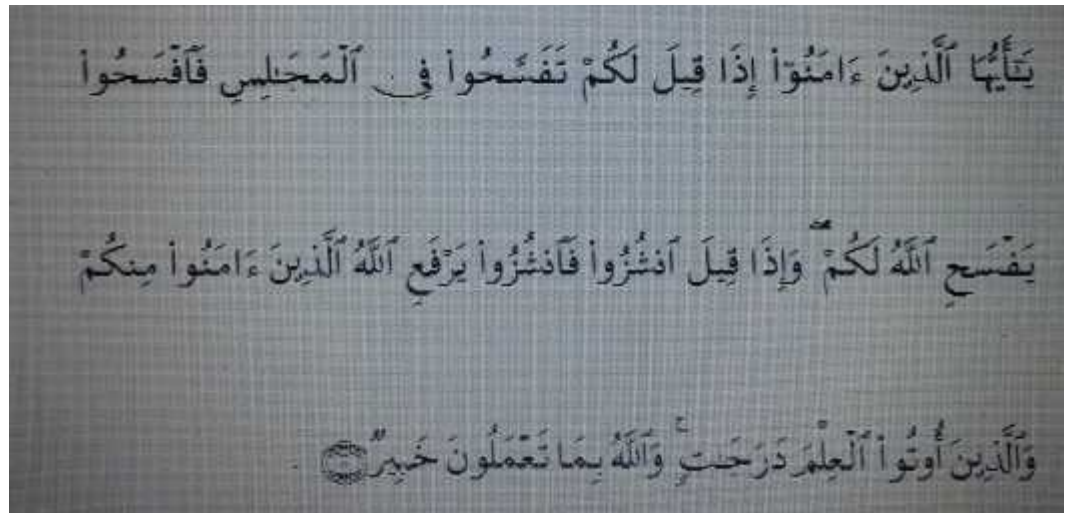 يَٰٓأَيُّهَا ٱلَّذِينَ ءَامَنُوٓا۟ إِذَا قِيلَ لَكُمْ تَفَسَّحُوا۟ فِى ٱلْمَجَٰلِسِ فَٱفْسَحُوا۟
يَفْسَحِ ٱللَّهُ لَكُمْ ۖ وَإِذَا قِيلَ ٱنشُزُوا۟ فَٱنشُزُوا۟ يَرْفَعِ ٱللَّهُ ٱلَّذِينَ ءَامَنُوا۟ مِنكُمْ
وَٱلَّذِينَ أُوتُوا۟ ٱلْعِلْمَ دَرَجَٰتٍ ۚ وَٱللَّهُ بِمَا تَعْمَلُونَ خَبِيرٌ